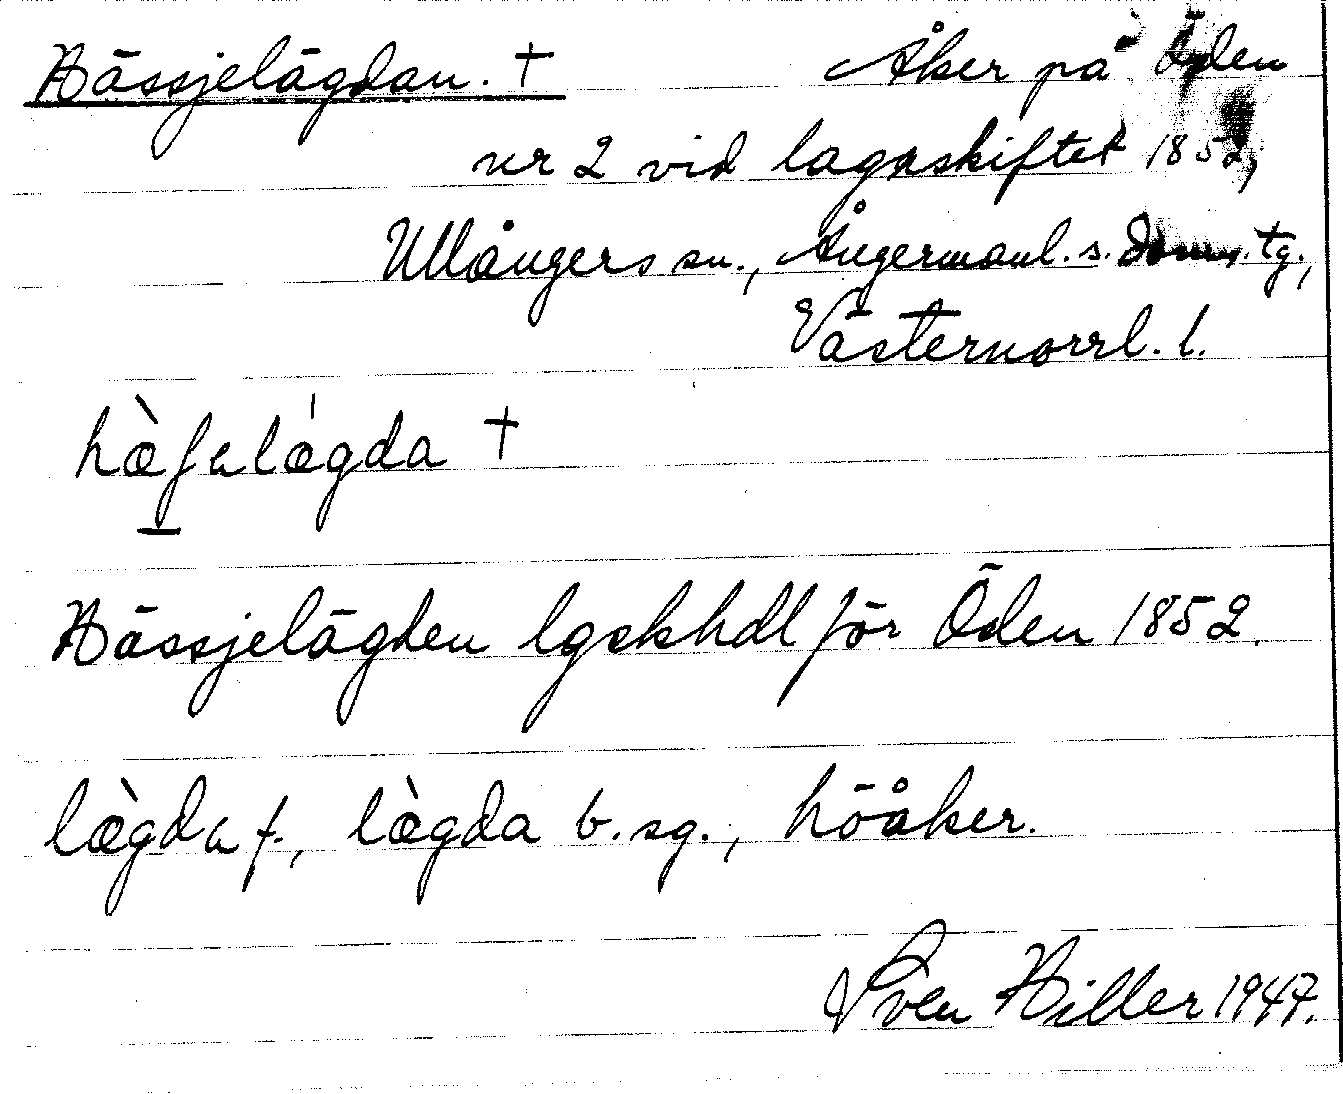 Hässjelägdan. † Åker på Öden
nr 2 vid lagaskiftet 1852,
Ullångers sn., Ångermanl. s. doms. tg.,
Västernorrl. l.
hæ̀ʃalǽgda †
Hässjelägden lgskhdl för Öden 1852.
læ̀gda f., læ̀gda b. sg., höåker.
Sven Hiller 1947.